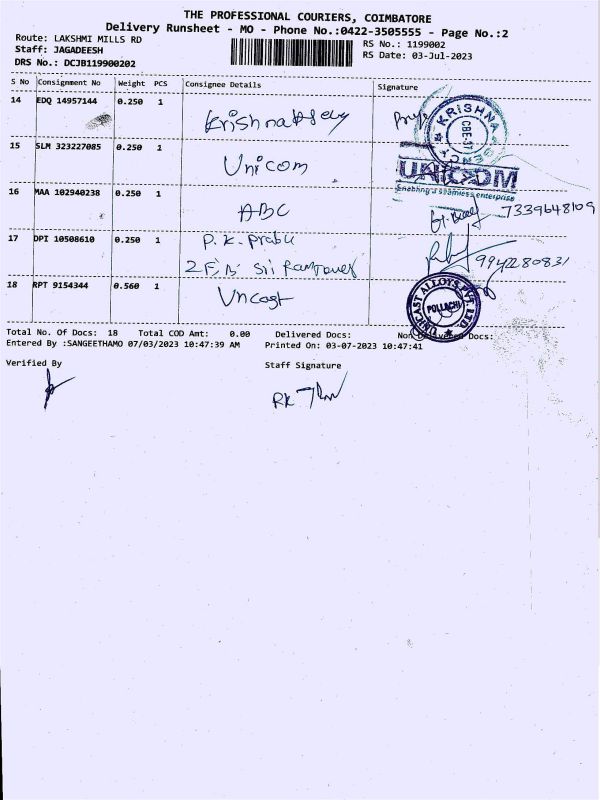 THE PROFESSIONAL COURIERS, COIMBATORE
Delivery Runsheet - MO - Phone No.:0422-3505555 - Page No.:2
Route: LAKSHMI MILLS RD
RS No.: 1199002
Staff: JAGADEESH
RS Date: 03-Jul-2023
DRS No.: DCJB119900202
S No Consignment No Weight PCS Consignee Details Signature
14 EDQ 14957144 0.250 1
KRISHNA AGENCY CBE-37
15 SLM 323227085 0.250 1 Unicom
UNICOM
Enabling a seamless enterprise
16 MAA 102940238 0.250 1 ABC 7339648109
17 DPI 10508610 0.250 1 P. K. Prabu
2F, Sri 9942280831
18 RPT 9154344 0.560 1 Unicast
UNICAST ALLOYS PVT. LTD. POLLACHI
Total No. Of Docs: 18 Total COD Amt: 0.00 Delivered Docs: Non Delivered Docs:
Entered By :SANGEETHAMO 07/03/2023 10:47:39 AM Printed On: 03-07-2023 10:47:41
Verified By Staff Signature